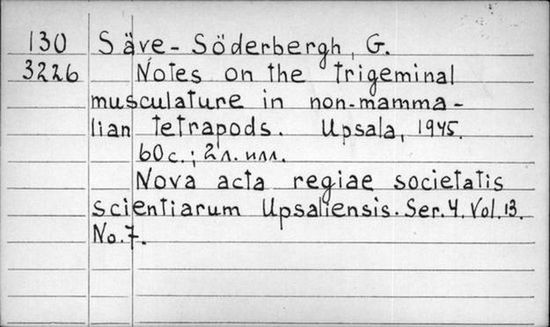 130 Säve-Söderbergh, G.
3226 Notes on the trigeminal
musculature in non-mamma-
lian tetrapods. Upsala, 1945.
60 с.; 2 л. илл.
Nova acta regiae societatis
scientiarum Upsaliensis. Ser. 4. Vol. 13.
No. 7.